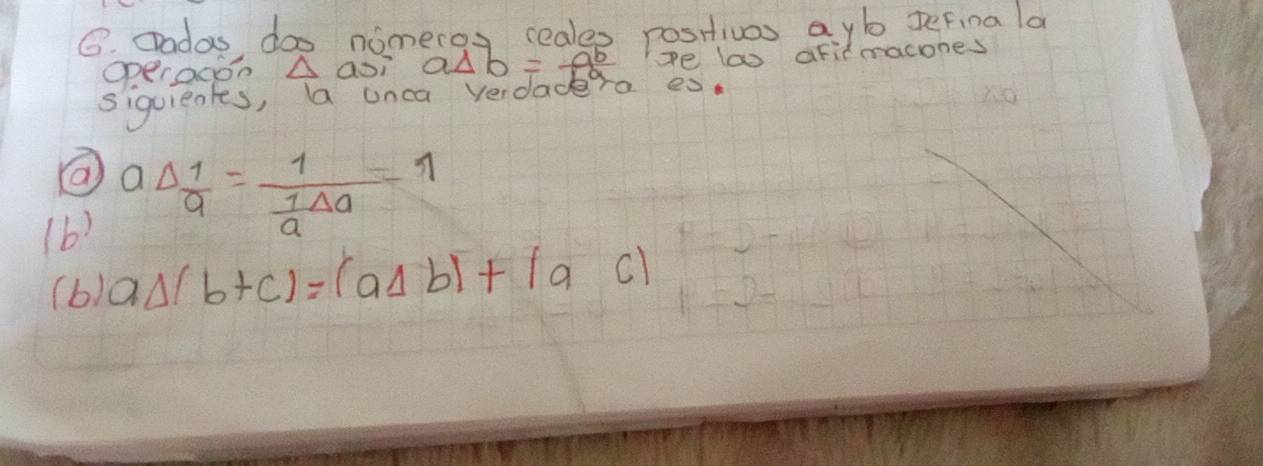 6. Dados, dos números reales positivos a y b defina la
operación Δ así aΔb = ab/b^a De las afirmacones
siguientes, la unca verdadera es.
(a) aΔ1/a = 1/(1/aΔa) = 1
(b)
(b) aΔ(b+c)=(aΔb)+(a c)